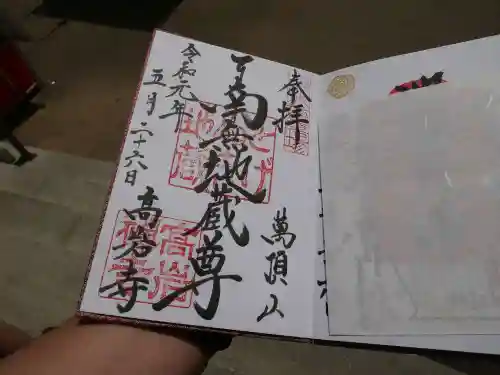 奉拝
萬頂山
南無地蔵尊
高岩寺
令和元年
五月二十六日
高岩